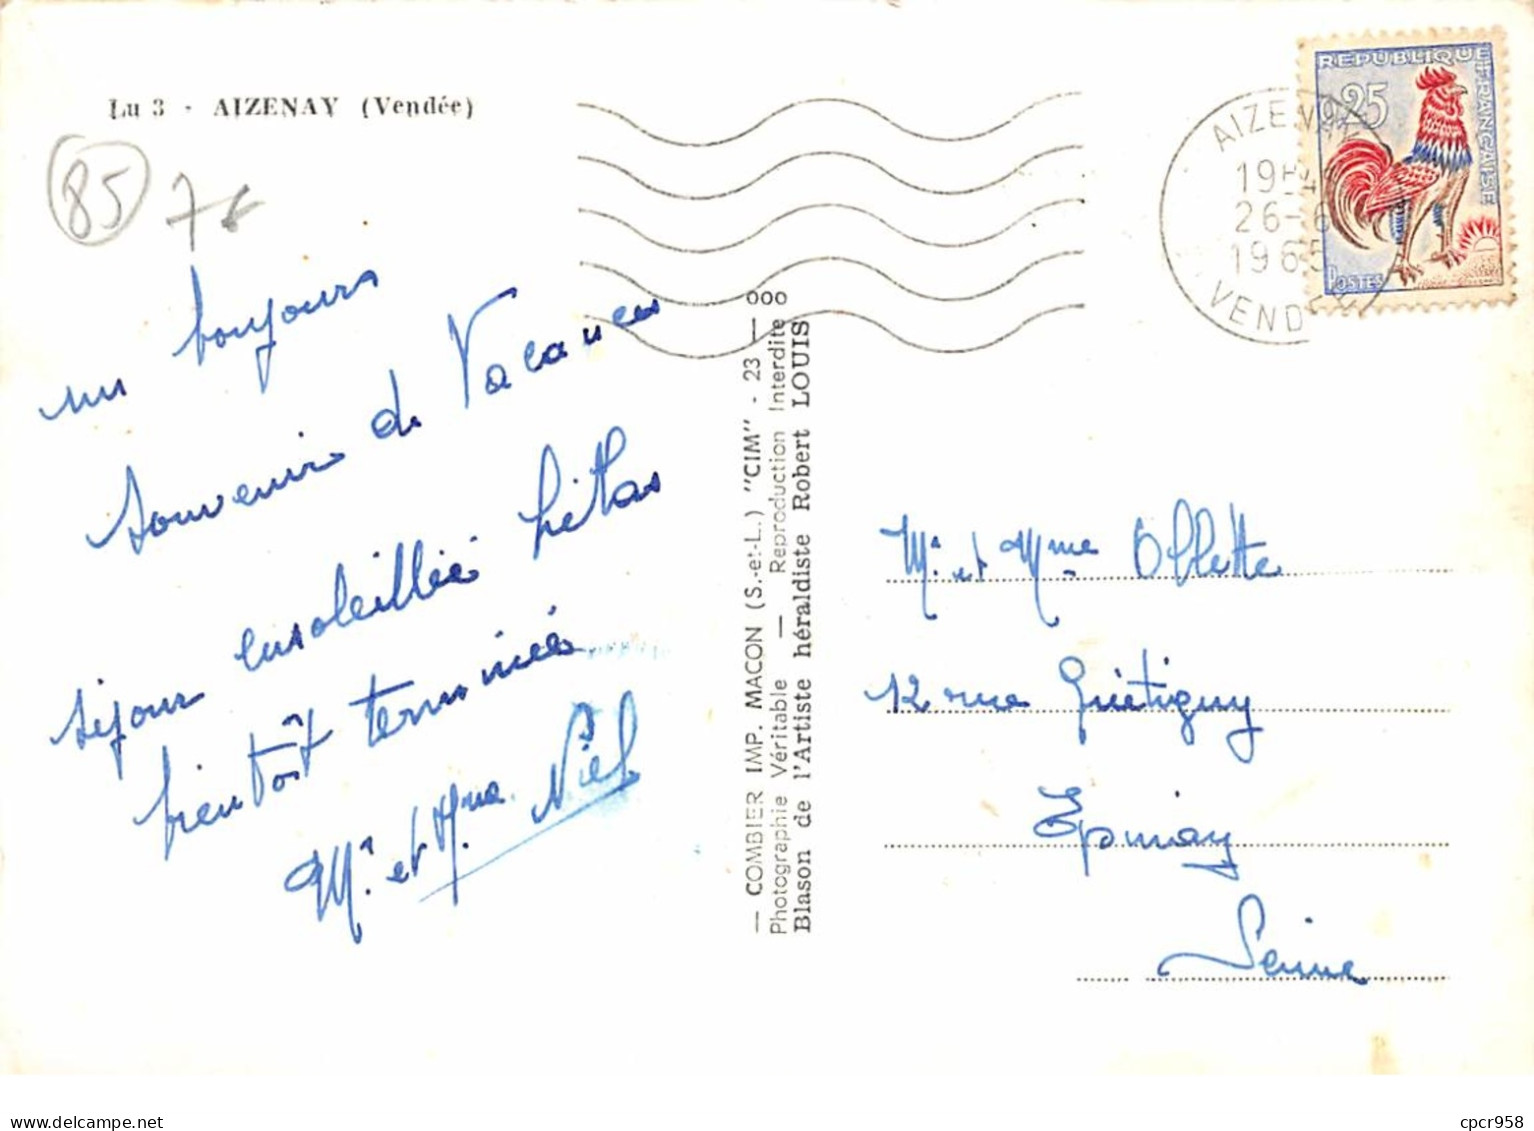 Lu 3 - AIZENAY (Vendée)
85 7€
un toujours
souvenir de Vacances
séjour ensoleillée hélas
bientôt terminée
Mr. et Mme. Niel
— COMBIER IMP. MACON (S.-et-L.) "CIM" - 23 — 000
Photographie Véritable — Reproduction Interdite
Blason de l'Artiste héraldiste Robert LOUIS
AIZENAY
19H
26-6
1965
VENDEE
REPUBLIQUE FRANCAISE
0,25
POSTES
Mr. et Mme Ollette
12 rue Guétigny
Epinay
Seine
cpcr958